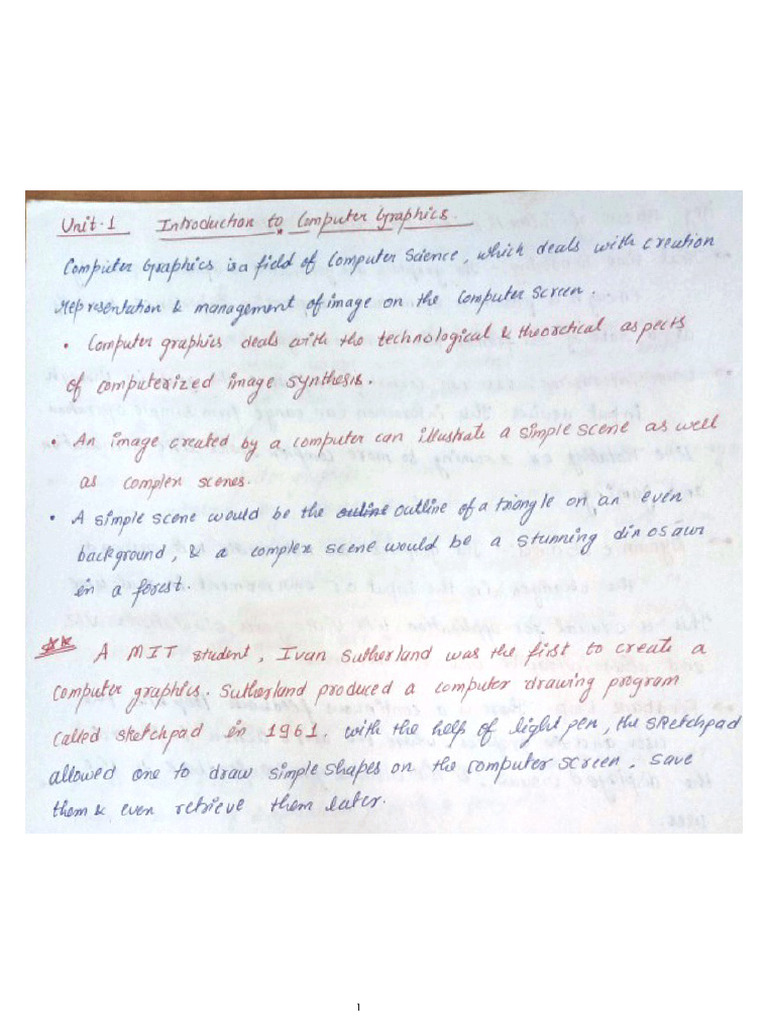 Unit-1 Introduction to Computer Graphics.
Computer Graphics is a field of Computer Science, which deals with creation
representation & management of image on the computer screen.
• Computer graphics deals with the technological & theoretical aspects
of computerized image synthesis.
• An image created by a computer can illustrate a simple scene as well
as complex scenes.
• A simple scene would be the outline outline of a triangle on an even
background, & a complex scene would be a stunning dinosaur
in a forest.
** A MIT student, Ivan Sutherland was the first to create a
computer graphics. Sutherland produced a computer drawing program
called sketchpad in 1961, with the help of light pen, the sketchpad
allowed one to draw simple shapes on the computer screen, save
them & even retrieve them later.
1